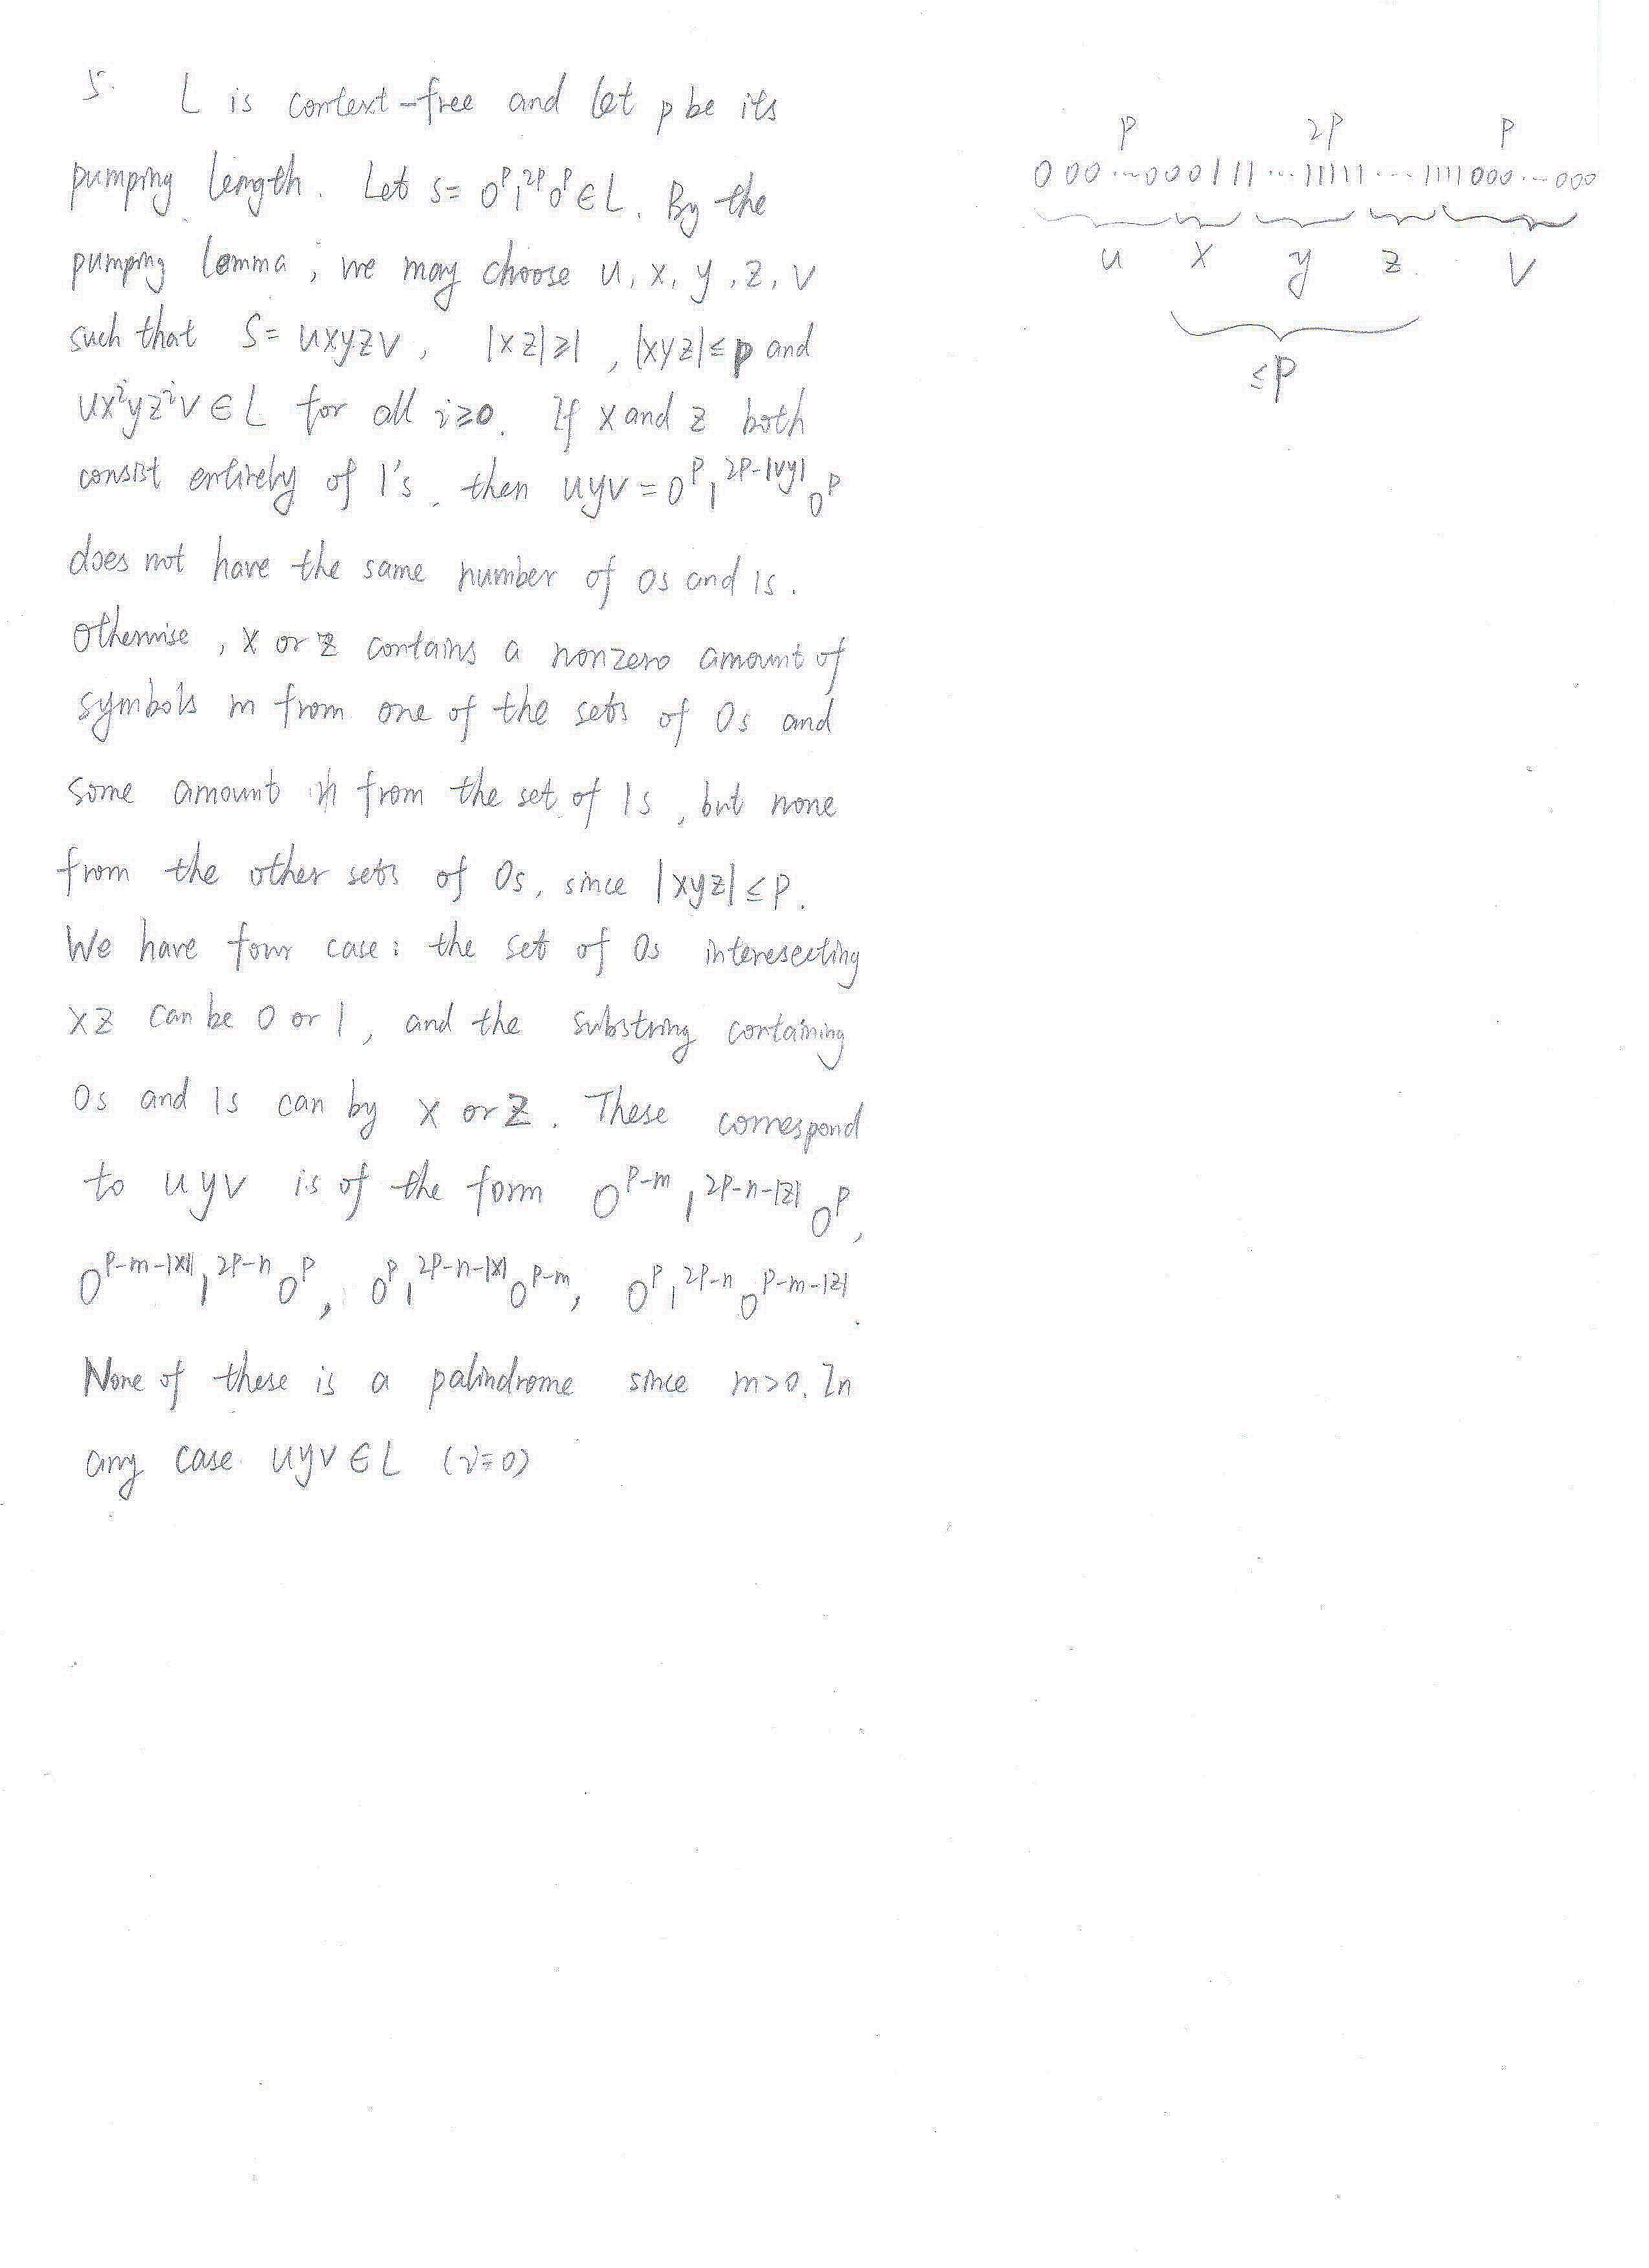 5. L is context-free and let p be its
pumping length. Let s= 0^p1^2p0^p ∈ L. By the
pumping lemma, we may choose u, x, y, z, v
such that S= uxyzv, |xz|≥1, |xyz|≤p and
ux^iyz^iv ∈ L for all i≥0. If x and z both
consist entirely of 1's, then uyv = 0^P1^2P-|vy|0^P
does not have the same number of 0s and 1s.
Otherwise, x or z contains a nonzero amount of
symbols m from one of the sets of 0s and
some amount n from the set of 1s, but none
from the other sets of 0s, since |xyz|≤P.
We have four case: the set of 0s interesecting
xz can be 0 or 1, and the substring containing
0s and 1s can by x or z. These correspond
to uyv is of the form 0^P-m 1^2P-n-|z| 0^P,
0^P-m-|x| 1^2P-n 0^P, 0^P 1^2P-n-|x| 0^P-m, 0^P 1^2P-n 0^P-m-|z|.
None of these is a palindrome since m>0. In
any case uyv ∈ L (i=0)
P 2P P
000...000111...11111...1111000...000
u x y z v
≤P